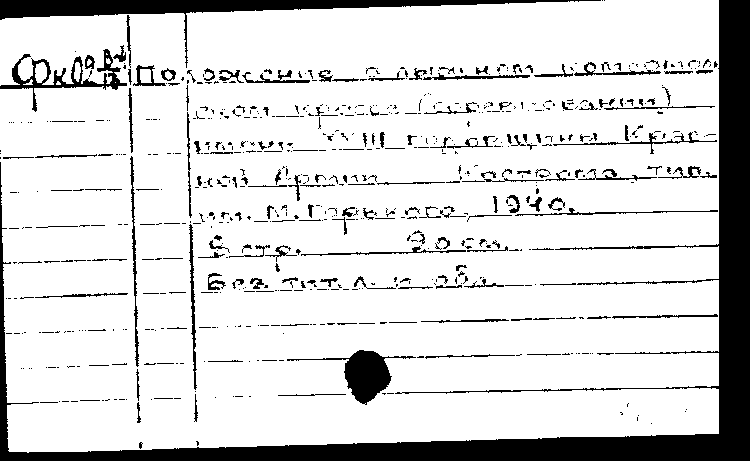 Фк02 Положение о лыжном комсомол
ском кроссе (соревновании)
имени XXIII годовщины Крас-
ной Армии. Кострома, тип.
им. М. Горького, 1940.
8 стр. 20 см.
Без тит. л. и обл.